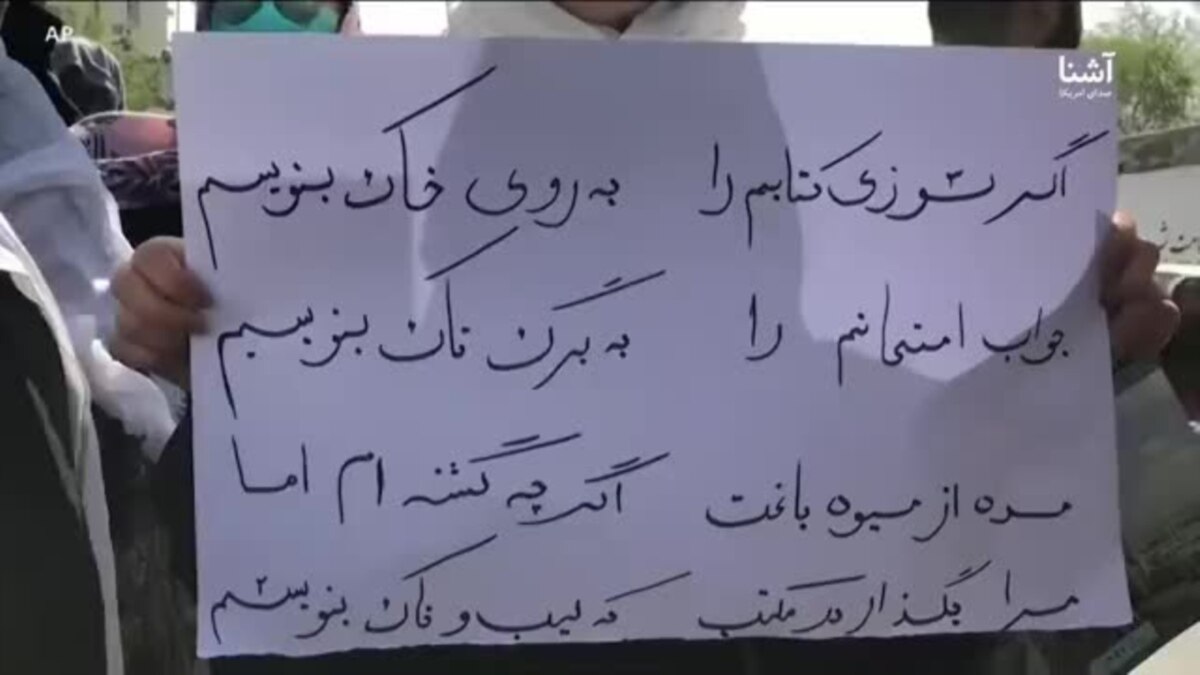 AP
آشنا
صدای امریکا
اگر سوزی کتابم را به روی خاک بنویسم
جواب امتحانم را به برگ تاک بنویسم
مده از میوه باغت اگر چه گشنه ام اما
مرا بگذار در مکتب که سیب و ناک بنویسم